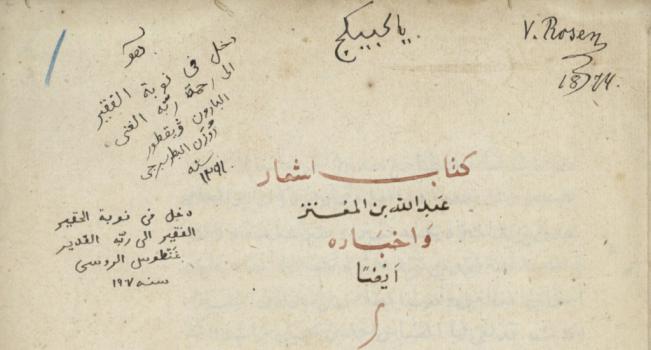 يا كبيكج
V. Rosen
1874.
هو
دخل فى نوبة الفقير
الى رحمة ربّه الغنى
البارون ڤيقطور
رُوزَن البطربرجى
سنه
١٢٩١
دخل فى نوبة الحقير
الفقير الى ربّه القدير
غنطوس الروسى
سنه ١٩٧
كتاب اشعار
عَبد الله بن المعتز
واخباره
اَيضًا